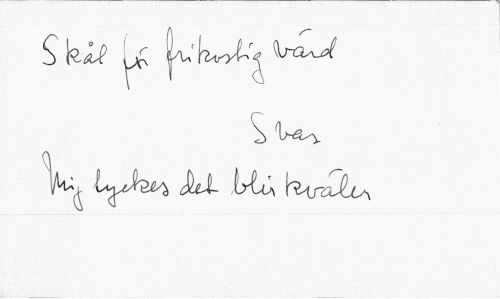 Skål för frikostig värd
Svar
Mig tyckes det blir kväler